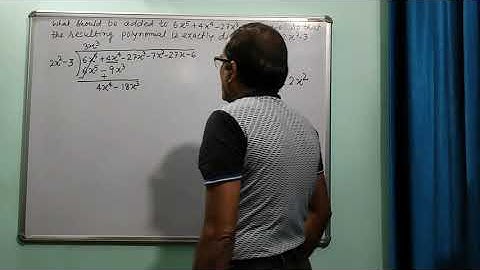 What should be added to 6x⁵+4x⁴-27x³ so that
the resulting polynomial is exactly 2x²-3
3x³
2x²-3 6x⁵+4x⁴-27x³-7x²-27x-6
6x⁵-9x³
+
4x⁴-18x³
2x²